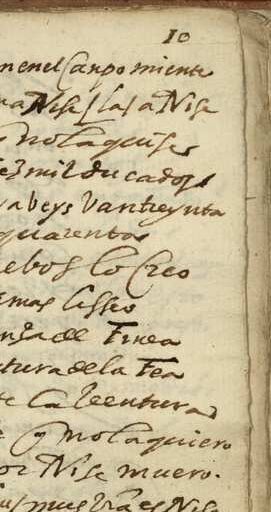 10
nenel Campo miente
na Nise / la / a Nise
y no la quise
diez mil ducados
abeys Vantreynta
quarenta
ebos lo Creo
mas liseo
de Finea
tura de la Fea
la Ventura
y no la quiero
or Nise muero.
es Nise